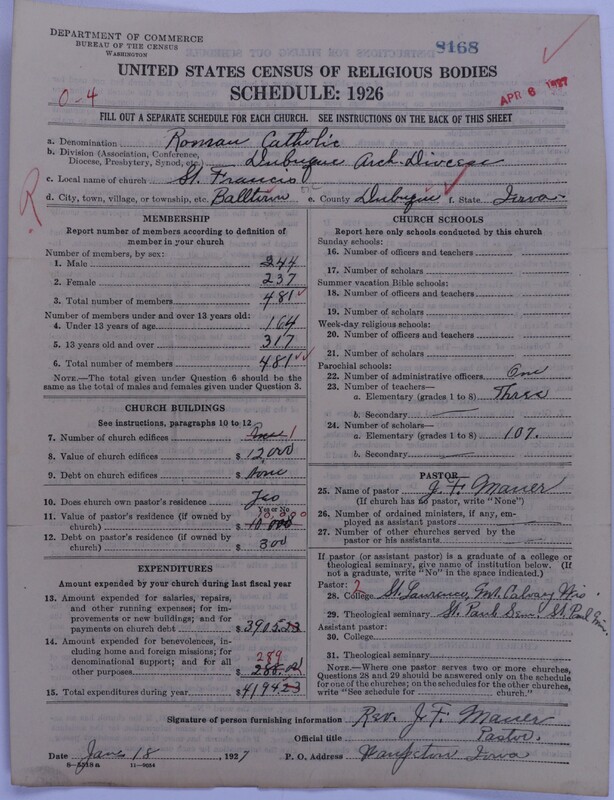 DEPARTMENT OF COMMERCE
BUREAU OF THE CENSUS
WASHINGTON
8168
UNITED STATES CENSUS OF RELIGIOUS BODIES
SCHEDULE: 1926
0-4
APR 6 1927
FILL OUT A SEPARATE SCHEDULE FOR EACH CHURCH. SEE INSTRUCTIONS ON THE BACK OF THIS SHEET
a. Denomination Roman Catholic
b. Division (Association, Conference, Diocese, Presbytery, Synod, etc.) Dubuque Arch-Diocese
c. Local name of church St. Francis
d. City, town, village, or township, etc. Balltown e. County Dubuque f. State Iowa
R
MEMBERSHIP
Report number of members according to definition of
member in your church
Number of members, by sex:
1. Male 244
2. Female 237
3. Total number of members 481
Number of members under and over 13 years old:
4. Under 13 years of age 164
5. 13 years old and over 317
6. Total number of members 481
NOTE.—The total given under Question 6 should be the
same as the total of males and females given under Question 3.
CHURCH BUILDINGS
See instructions, paragraphs 10 to 12
7. Number of church edifices One 1
8. Value of church edifices $ 12,000
9. Debt on church edifices $ None
10. Does church own pastor's residence Yes
Yes or No
11. Value of pastor's residence (if owned by
church) $ 10 000
12. Debt on pastor's residence (if owned by
church) $ 300
EXPENDITURES
Amount expended by your church during last fiscal year
13. Amount expended for salaries, repairs,
and other running expenses; for im-
provements or new buildings; and for
payments on church debt $ 3905.23
14. Amount expended for benevolences, in-
cluding home and foreign missions; for
denominational support; and for all
other purposes $ 289
15. Total expenditures during year $ 4194.23
CHURCH SCHOOLS
Report here only schools conducted by this church
Sunday schools:
16. Number of officers and teachers
17. Number of scholars
Summer vacation Bible schools:
18. Number of officers and teachers
19. Number of scholars
Week-day religious schools:
20. Number of officers and teachers
21. Number of scholars
Parochial schools:
22. Number of administrative officers One
23. Number of teachers—
a. Elementary (grades 1 to 8) Three
b. Secondary
24. Number of scholars—
a. Elementary (grades 1 to 8) 107.
b. Secondary
PASTOR
25. Name of pastor J. F. Mauer
(If church has no pastor, write "None")
26. Number of ordained ministers, if any, em-
ployed as assistant pastors
27. Number of other churches served by the
pastor or his assistants
If pastor (or assistant pastor) is a graduate of a college or
theological seminary, give name of institution below. (If
not a graduate, write "No" in the space indicated.)
Pastor: 2
28. College St. Laurence, Mt. Calvary Wis
29. Theological seminary St. Paul Sem. St. Paul Minn.
Assistant pastor:
30. College
31. Theological seminary
NOTE.—Where one pastor serves two or more churches,
Questions 28 and 29 should be answered only on the schedule
for one of the churches; on the schedules for the other churches,
write "See schedule for church."
Signature of person furnishing information Rev. J. F. Mauer
Official title Pastor.
Date Jan. 18, 1927 P. O. Address Iowa
8-5318a 11-9684